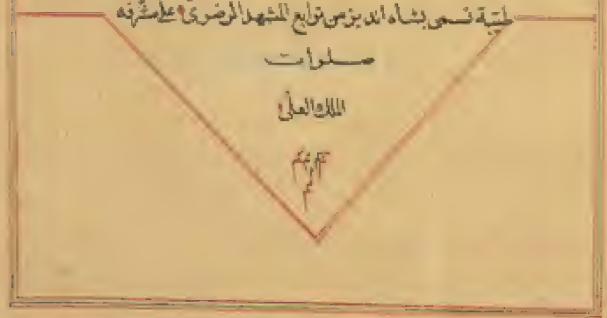 طيبة تسمى بشاه انديز من توابع المشهد الرضوي على مشرفه
صلوات
الملك العلي
تم تم
تم